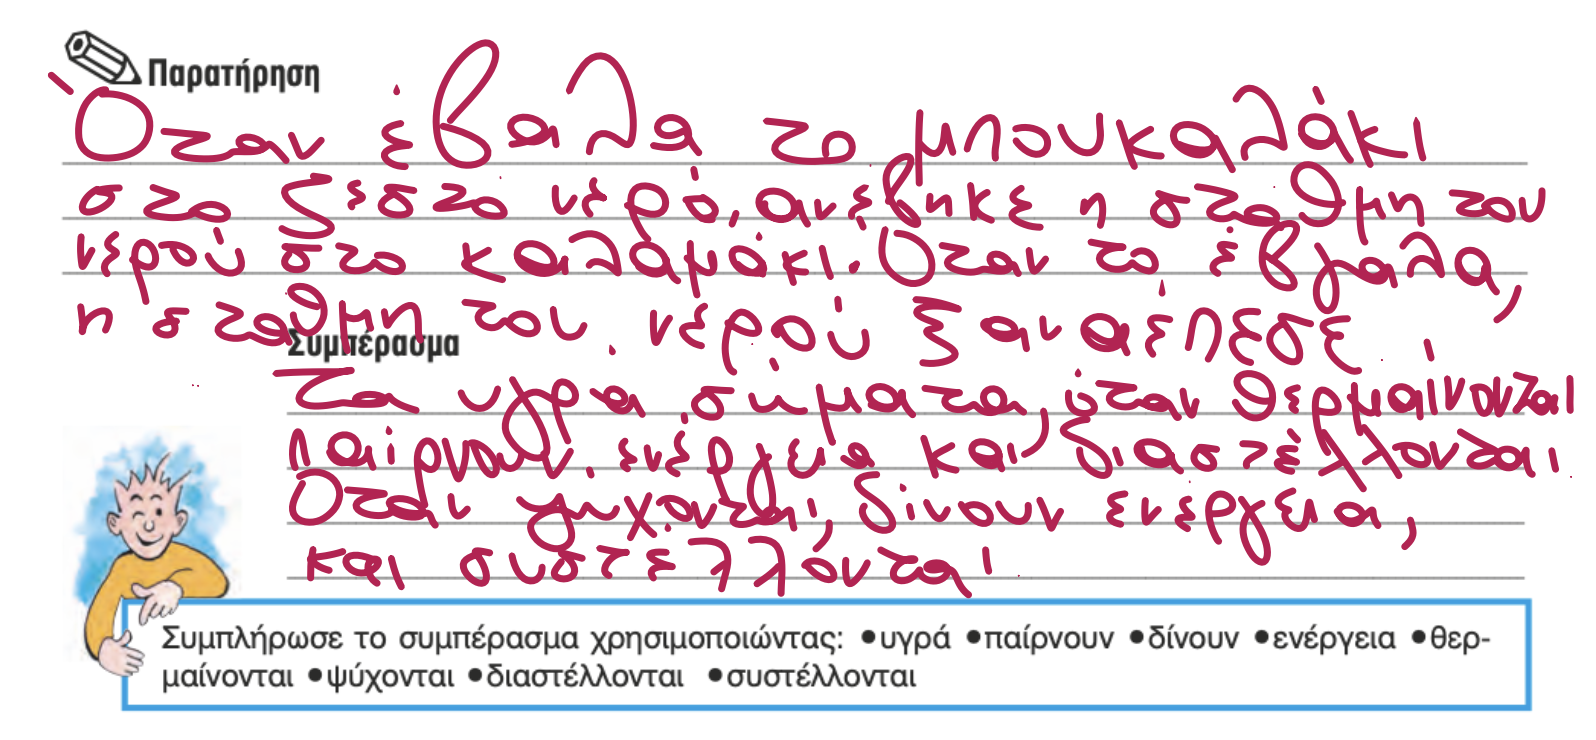 Παρατήρηση
Όταν έβαλα το μπουκαλάκι
στο ζεστο νέρό, ανέβηκε η σταθμη του
νερού στο καλαμάκι. Όταν το έβγαλα,
η σταθμη του νερού ξαναέπεσε.
Συμπέρασμα
Τα υγρα σώματα, όταν θερμαινονται
παίρνουν ενέργεια και διαστέλλονται.
Οταν ψυχονται, δίνουν ενέργεια,
και συστέλλονται
Συμπλήρωσε το συμπέρασμα χρησιμοποιώντας: •υγρά •παίρνουν •δίνουν •ενέργεια •θερ-
μαίνονται •ψύχονται •διαστέλλονται •συστέλλονται